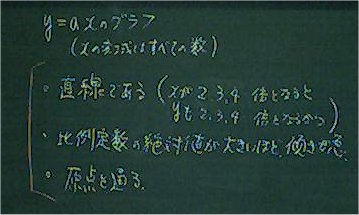 y=axのグラフ
(xの変域はすべての数)
・直線である(xが2,3,4倍となると
yも2,3,4倍となるから)
・比例定数の絶対値が大きいほど、傾きが急
・原点を通る